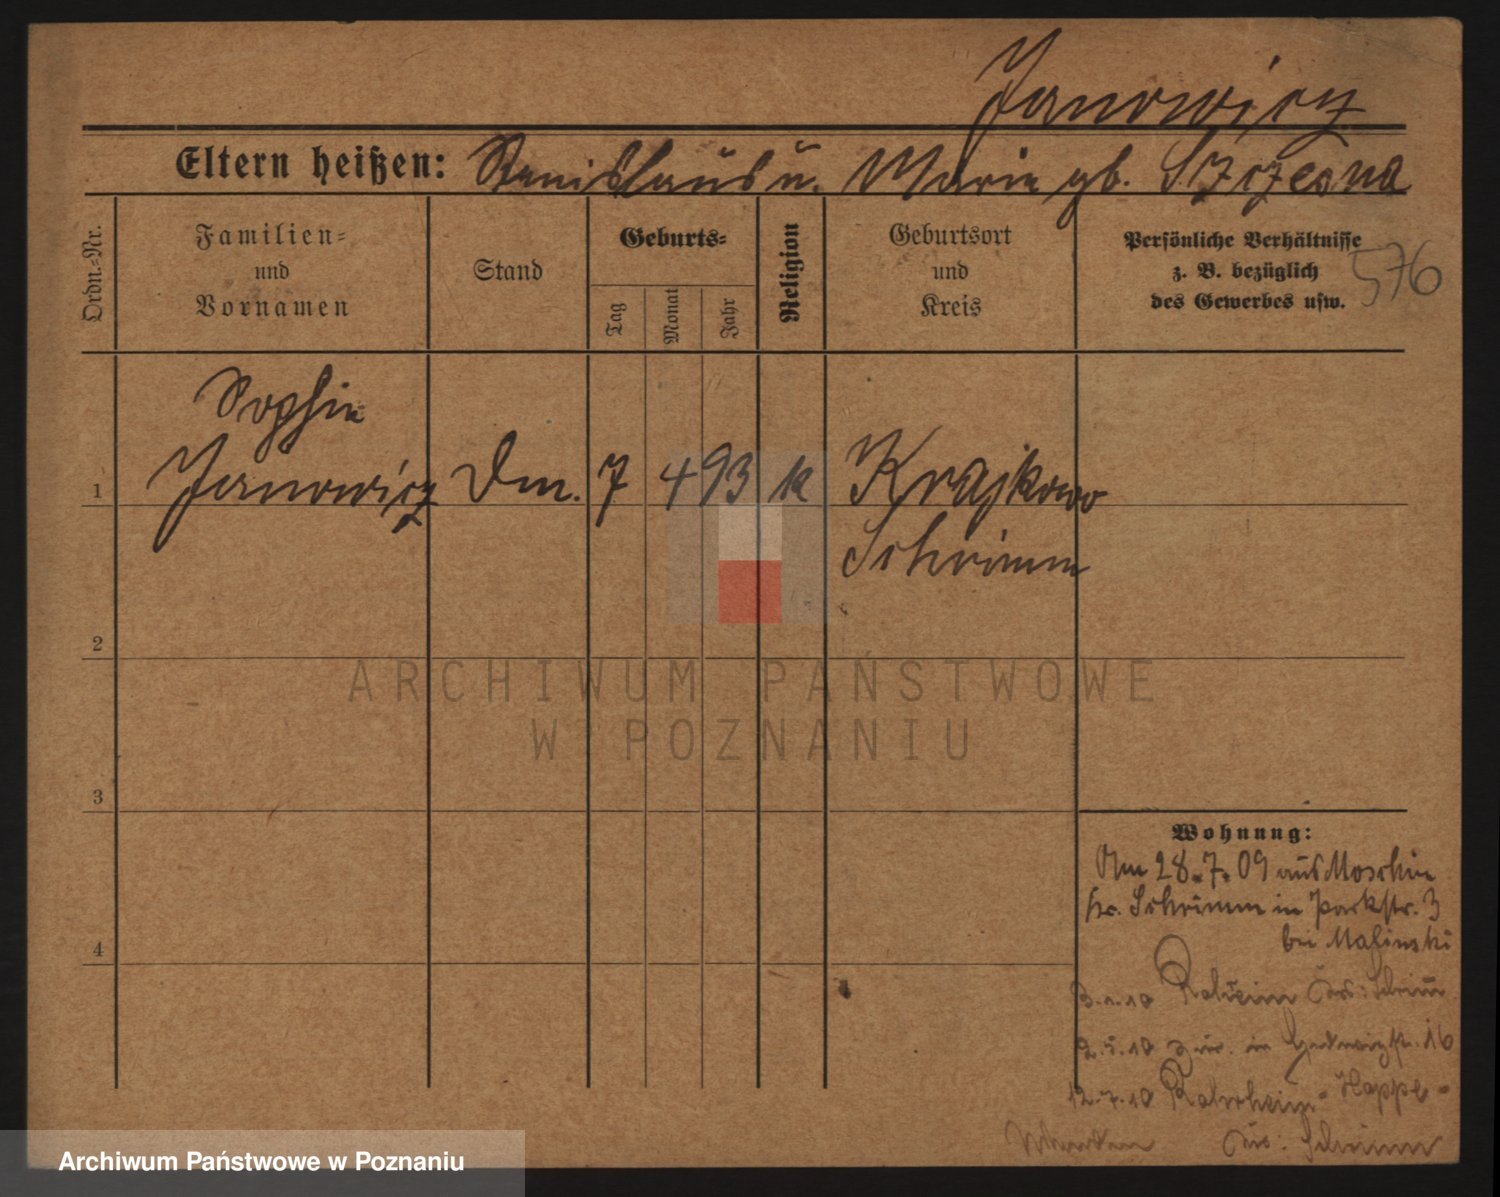 Janowicz
Eltern heißen: Stanislaus u. Marie gb. Szczesna
Ordn.-Nr.
Familien-
und
Vornamen
Stand
Geburts-
Tag
Monat
Jahr
Religion
Geburtsort
und
Kreis
Persönliche Verhältnisse
z. B. bezüglich
des Gewerbes usw.
576
Sophie
1 Janowicz Dm. 7 4 93 k Krajkowo
Schrimm
2
ARCHIWUM PAŃSTWOWE
W POZNANIU
3
Wohnung:
Am 28.7.09 aus Moschin
Kr. Schrimm in Parkstr. 3
4
bei Malinski
3.1.10 Krs. Schrimm
2.5.10 zur. in Hedwigstr. 16
12.7.10
Krs. Schrimm
Archiwum Państwowe w Poznaniu